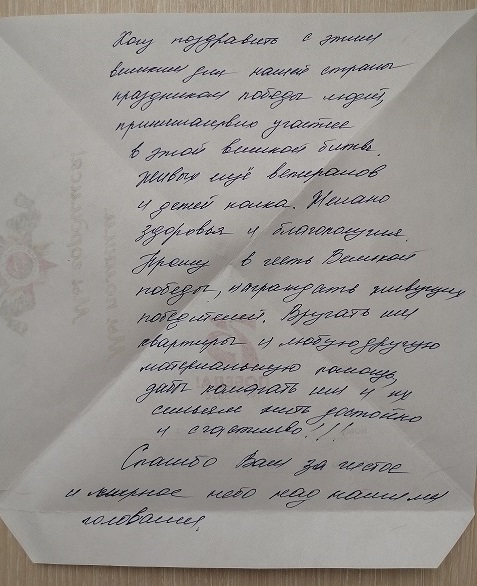 Хочу поздравить с этим
великим для нашей страны
праздником победы людей,
принимавших участие
в этой великой битве.
Живых ещё ветеранов
и детей полка. Желаю
здоровья и благополучия.
Прошу в честь Великой
победы, награждать живущих
победителей. Вручать им
квартиры и любую другую
материальную помощь,
дабы каждать им и их
семьям жить достойно
и счастливо!!!
Спасибо Вам за чистое
и мирное небо над нашими
головами.